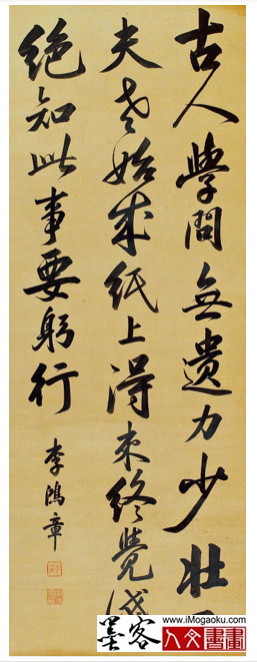 古人學問無遺力少壯
夫老始成紙上得來終覺
絕知此事要躬行
李鴻章
www.iMogaoku.com
墨客
人文書畫